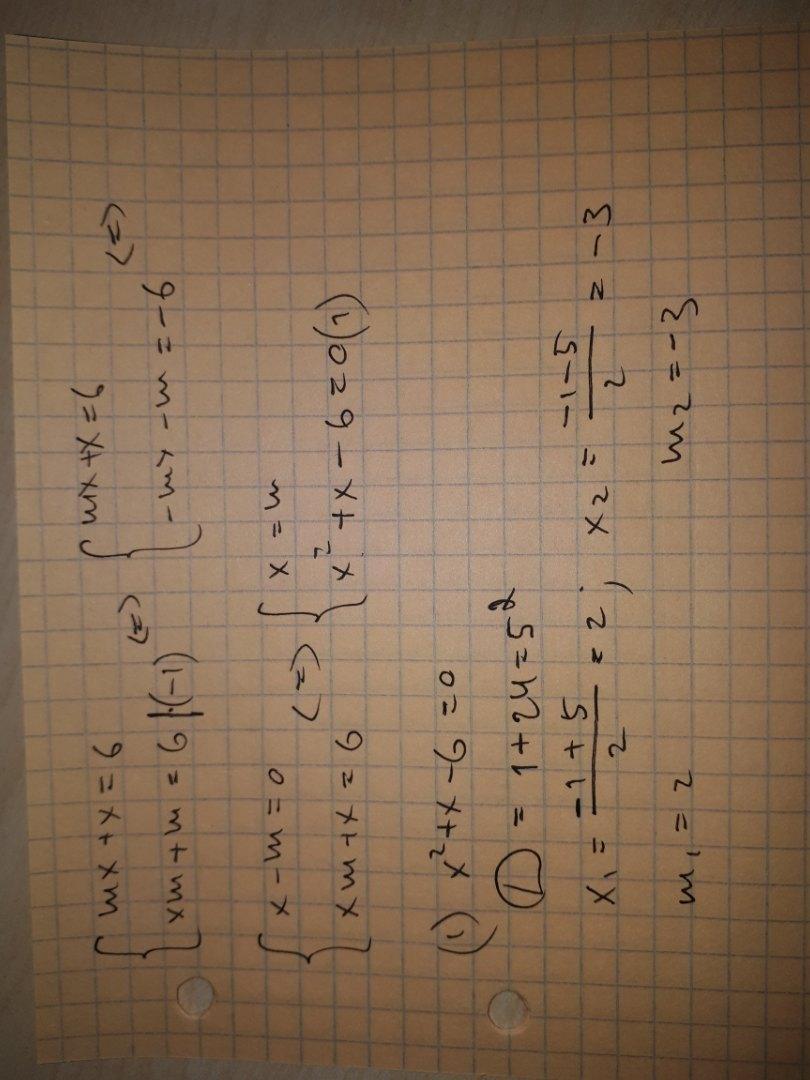 { mx + x = 6 <=> { mx + x = 6 <=>
xm + m = 6 |·(-1) -mx - m = -6
{ x - m = 0 <=> { x = m
xm + x = 6 x² + x - 6 = 0 (1)
(1) x² + x - 6 = 0
D = 1 + 24 = 5²
x₁ = (-1 + 5)/2 = 2 ; x₂ = (-1 - 5)/2 = -3
m₁ = 2 m₂ = -3